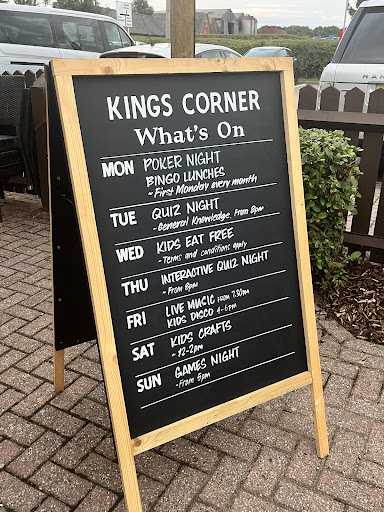 KINGS CORNER
What's On
MON POKER NIGHT
BINGO LUNCHES
- First Monday every month
TUE QUIZ NIGHT
- General Knowledge. From 8pm
WED KIDS EAT FREE
- Terms and conditions apply
THU INTERACTIVE QUIZ NIGHT
- From 8pm
FRI LIVE MUSIC FROM 7.30PM
KIDS DISCO 4-6PM
SAT KIDS CRAFTS
- 12-2pm
SUN GAMES NIGHT
- From 5pm